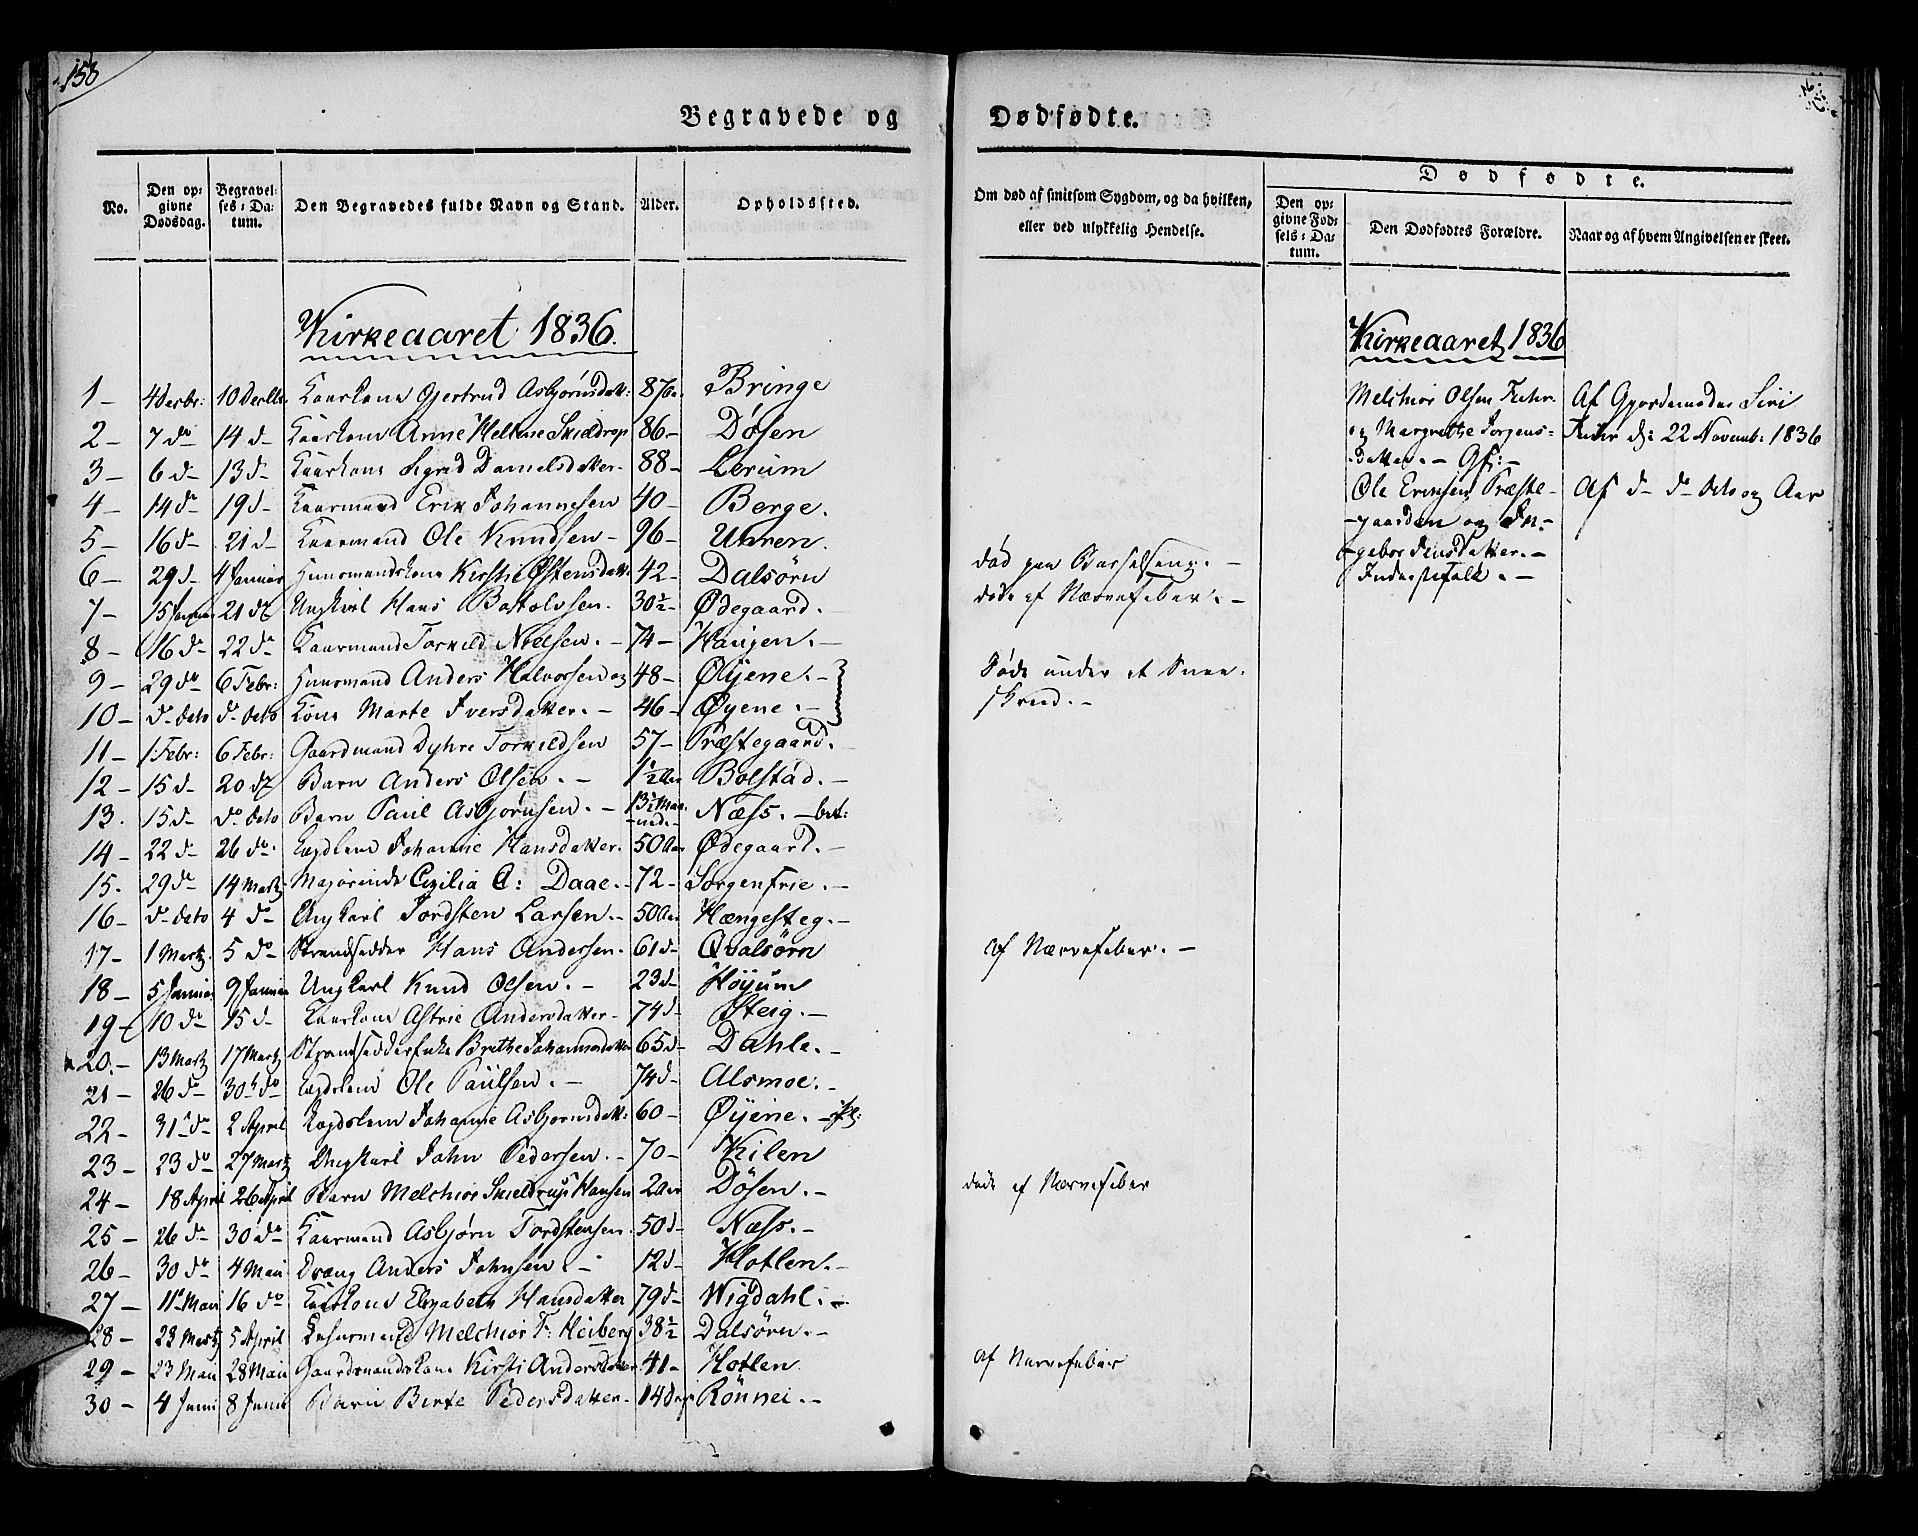 158
Begravede og Dødfødte.
No. Den opgivne Dødsdag. Begravelses-Datum. Den Begravedes fulde Navn og Stand. Alder. Opholdssted.
Om død af smitsom Sygdom, og da hvilken, eller ved ulykkelig Hendelse.
Dødfødte.
Den opgivne Fødsels-Datum. Den Dødfødtes Forældre. Naar og af hvem Angivelsen er skeet.
Kirkeaaret 1836.
1 – 4 Decbr: 10 Decbr. Kaarkone Gjertrud Asbjörnsdatt: 87 Bringe
2 – 7 do 14 d– Kaarkone Anne Helene Skieldrop 86 – Dösen
3 – 6 d– 13 d– Kaarkone Sigrid Danielsdatter – 88 – Lerum
4 – 14 do 19 d– Kaarmand Erik Johannesen 40 – Berge.
5 – 16 d– 21 d– Kaarmand Ole Knudsen – 96 – Uhren.
6 – 29 d– 4 Januar Huusmandskone Kirstie Østensdatt: 42 – Dalsörn død paa Barselseng. –
7 – 15 Januar 21 do Ungkarl Hans Batolvsen. 30½ – Ødegaard. døde af Nærvefeber. –
8 – 16 d– 22 do Kaarmand Torkild Nielsen. – 74 – Haugen. –
9 – 29 do 6 Febr: Huusmand Anders Halvorsen og 48 – Øyene. – Døde under et Snee-
10 – d– dito d– dito Kone Marte Iversdatter. – 46 – Øyene. – skred. –
11 – 1 Febr: 6 Febr: Gaardmand Dyhre Torkildsen 57 – Præstegaard.
12 – 15 d– 20 do Barn Anders Olsen. – 1½ Aar Bolstad. –
13. 15 d– do dito Barn Paul Asbjörnsen. – 13½ Maa-ned. – Næss. –
14 – 22 d– 26 do Lægdlem Johanne Hansdatter. 50 Aar Ødegaard. –
15. 29 do 14 Martz Majorinde Cezilia C: Daae. – 72 – Sorgenfrie. –
16 – d– dito 4 do Ungkarl Tordsten Larsen. – 50 Aar Hængesteg. –
17 – 1 Martz. 5 do Strandsedder Hans Andersen. 61 d– Qvalsörn af Nærvefeber. –
18 – 5 Januar 9 Januar Ungkarl Knud Olsen. – 23 d– Höyum
19 – 10 do 15 d– Kaarkone Astrie Andersdatter – 74 d– Steig. –
20. – 13 Martz 17 Martz Strandsedderenke Brithe Johannesdatter 65 d– Dahle. –
21 – 26 do 30 do Lægdlem Ole Paulsen. – 74 d– Alsmoe. –
22 – 31 do 2 April Lægdslem Johanne Asbjörnsdatt: 60 – Øyene. –
23 – 23 do 27 Martz Ungkarl John Pedersen. – 70 – Kilen
24 – 18 April 26 April Barn Melchior Skieldrup Hansen 2 Aar Dösen. – døde af Nærvefeber
25 – 26 do 30 do Kaarmand Asbjørn Tordstensen. 50 d– Næss. –
26 – 30 do 4 Mai Dreng Anders Johnsen. – 12 d– Hotlen. –
27 – 11 Mai 16 do Kaarkone Elisabeth Hansdatter 79 d– Wigdahl. –
28 – 23 Martz 5 April Melchior F: Heiberg 38½ Dalsörn. –
29 – 23 Mai 28 Mai Gaardmandskone Kirsti Andersdatter. 41 – Hotlen. af Nervefeber
30 – 4 Juni 8 Juni Barn Birte Pedersdatter. – 14 Dage Rönnei. –
Kirkeaaret 1836
Melchior Olsen
og Margrethe Jörgens-
datter. –
Ole Eriksen Præste-
-gaarden og In-
gebor Jensdatter. –
Inderstfolk. –
Af Gjordemoder Siri
d: 22 Novemb: 1836
Af d– do dito og Aar